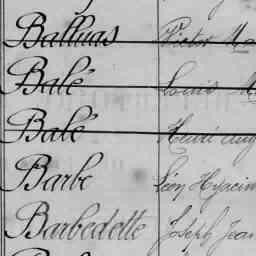 Balluas Victor Ma
Balé Louis M
Balé Henri Aug
Barbe Léon Hyacin
Barbedette Joseph Jean